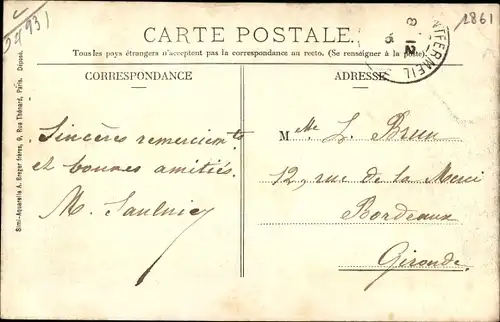 1861
CARTE POSTALE.
Tous les pays étrangers n'acceptent pas la correspondance au recto. (Se renseigner à la poste).
CORRESPONDANCE
Sincères remerciemts
et bonnes amitiés.
M. Saulnier
ADRESSE
Mlle L. Brun
12, rue de la Merci
Bordeaux
Gironde.
8 12
MEIL
Simi-Aquarelle A. Breger frères, 9, Rue Thénard, Paris. Déposé.